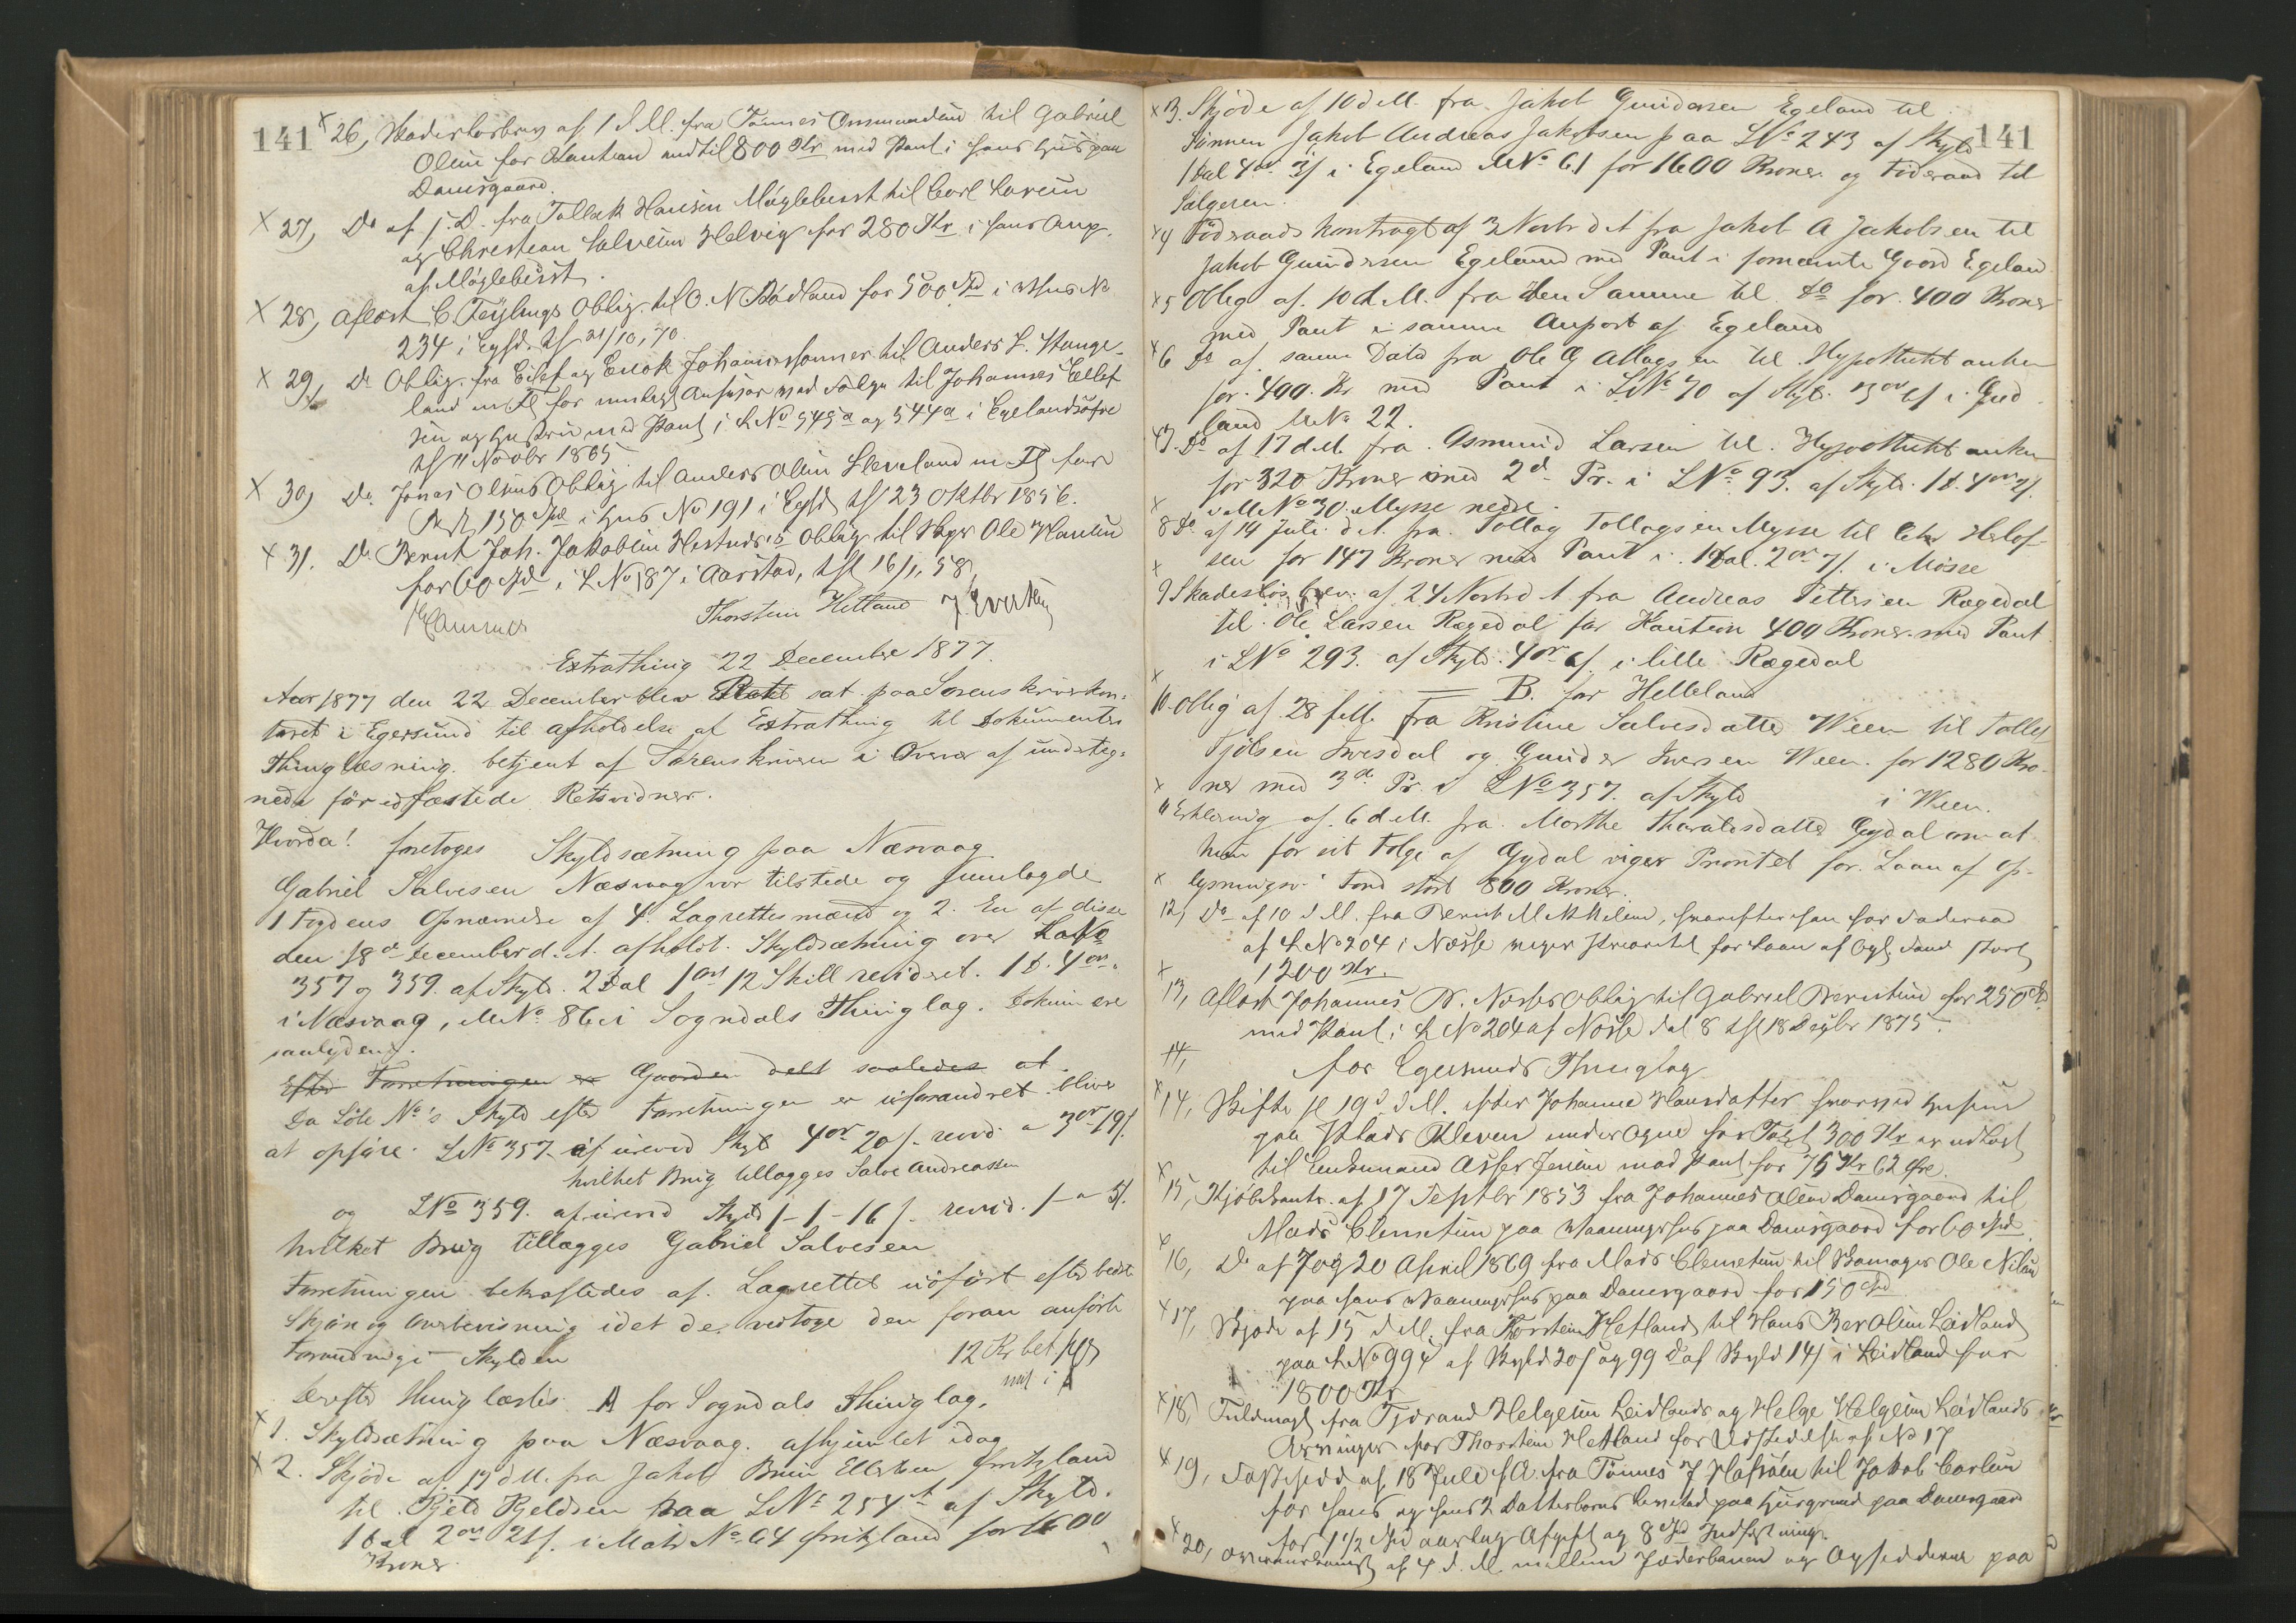 141 × 26, Skadesløsbrev af 1 d M. fra Tønnes Ommundsen til Gabriel
Olsen for Kaution indtil 800 Kr med Pant i hans Hus paa
Damsgaard.
× 27, Do af s. D. fra Tollak Hansen Møglebust til Carl Larsen
og Christian Salvesen Helvig for 280 Kr i hans Anp.
af Møglebust.
× 28, aflæst C. Feylings Oblig. til O. N Rødland for 500 Spd i Hus No
234 i Egsd. tl 21/10, 70
× 29, Do Oblig. fra Eilef og Enok Johannessønner til Anders L. Stange-
land m Fl for Ansvar med Følge til Johannes Eilef
sen og Hustru med Pant i L No 545a og 544a i Egelandsøfre
tl 11 Novbr 1865
× 30, Do. Jonas Olsens Oblig til Anders Olsen Sleveland m Fl for
Rest 150 Spd i Hus No 191 i Egsd tl 23 Oktbr 1856.
× 31. Do Bernt Joh. Jakobsen Hestnes's Oblig til Skpr Ole Hansen
for 60 Spd i L No 187 i Aarstad, tl 16/1, 58,
Thorsten Hetland
Extrathing 22 December 1877.
Aar 1877 den 22 December blev Retten sat paa Sorenskriverkon-
toret i Egersund til afholdelse af Extrathing til Dokumenters
Thinglæsning betjent af Sorenskriveren i Overvær af underteg-
nede før edfæstede Retsvidner.
Hvorda! foretoges Skyldsætning paa Næsvaag
Gabriel Salvesen Næsvaag var tilstede og fremlagde
1 Fogdens Opnævnelse af 4 Lagrettesmænd og 2. En af disse
den 18de December d. A. afholdt Skyldsætning over Løbe No
357 og 359 af Skyld. 2 Dal 1 ort 12 Skill revideret 1 D. 4 ort.
i Næsvaag, MNo 86 i Sogndals Thinglag. Dokum ere
saalydende.
Efter Forretningen er Gaarden delt saaledes at
Da Løbe No's Skyld efter Forretningen er uforandret bliver
at opføre LNo 357 af urevid Skyld 4 ort 20 s. revid a 3 ort 19 s.
hvilket Brug tillægges Salve Andreassen
og LNo 359. af urevid Skyld 1-1-16 s. revid. 1- a 5 s.
hvilket Brug tillægges Gabriel Salvesen
Forretningen bekræftedes af Lagrettet udført efter bedste
Skjøn og Overbevisning idet de vedtoge den foran anførte
Forandring i Skylden 12 Kr bet
Derefter thinglæstes. A for Sogndals Thinglag.
× 1. Skyldsætning paa Næsvaag. afhjemlet idag
× 2. Skjøde af 17 d M. fra Jakob Bruun Ellertsen Fritzland
til Kjeld Kjeldsen paa LNo 254 b af Skyld.
1 Dal 2 ort 21 s. i Matr No 64 Fritzland for 1600
Kroner.
141
× 3. Skjøde af 10 d M. fra Jakob Gundersen Egeland til
Sønnen Jakob Andreas Jakobsen paa LNo 243 af Skyld
1 Dal 4 ort 3 s i Egeland MNo 61 for 1600 Kroner og Føderaad til
Sælgeren.
× 4 Føderaads kontragt af 3 Novbr d A fra Jakob A Jakobsen til
Jakob Gundersen Egeland med Pant i fornævnte Gaard Egeland
× 5 Oblig af 10 d M. fra den Samme til Do for 400 Kroner
med Pant i samme Anpart af Egeland
× 6 Do af samme Dato fra Ole G Atlagsen til Hypothekbanken
for 400 Kr med Pant i LNo 70 af Skyld 3 ort 6 s i Gud
land MNo 22.
× 7. Do af 17 d M. fra Asmund Larsen til Hypothekbanken
for 320 Kroner med 2d Pr. i LNo 93. af Skyld 1 D. 4 ort 2 s.
i MNo 30. Mysse nedre.
× 8 Do af 14 Juli d A. fra Tollag Tollagsen Mysse til Helof-
sen for 147 Kroner med Pant i 1 Dal. 2 ort 7 s. i Mosse
× 9 Skadesløsbrev af 24 Novbr d A fra Andreas Pettersen Rægedal
til Ole Larsen Rægedal for Kaution 400 Kroner med Pant
i LNo 293. af Skyld. 4 ort 6 s. i lille Rægedal
B. for Helleland
× 10. Oblig af 28 f M. fra Kristine Salvesdatter Ween til Tollef
Tjølsen Iversdal og Gunder Iversen Ween. for 1280 Kro-
ner med 3die Pr. i LNo 357. af Skyld i Ween.
× 11 Erklering af 6 d M. fra Marthe Tharaldsdatter Gydal om at
hun for sit Følge af Gydal viger Prioritet for Laan af Op-
lysningsv. Fond stort 800 Kroner.
× 12, Do af 10 d M. fra Bernt M Mikkelsen, hvorefter han for Føderaad
af L No 204 i Nesse viger Prioritet for Laan af Opl. Fond stort
1200 Kr.
× 13, Aflæst Johannes B. Nesses Oblig til Gabriel Berentsen for 250 Spd
med Pant i L No 204 af Nesse dat 8 tl 18 Septbr 1875.
14, for Egersunds Thinglag
× 14, Skifte sl 19 d M. efter Johanne Hansdatter hvorved Husene
paa Plads Kleven under Ogne for Taxt 300 Kr er udlagt
til Enkemand Asser Jensen med Pant for 75 Kr 62 Øre.
× 15, Kjøbekontr. af 17 Septbr 1853 fra Johannes Olsen Damsgaard til
Mads Clemetsen paa Vaaningshus paa Damsgaard for 60 Spd.
× 16, Do af 7 og 20 April 1869 fra Mads Clemetsen til Skomager Ole Nilsen
paa hans Vaaningshus paa Damsgaard for 150 Spd
× 17, Skjøde af 15 d M. fra Thorsten Hetland til Hans Ber Olsen Leidland
paa L No 99 c af Skyld 20 s og 99 d af Skyld 14 s i Leidland for
1800 Kr
× 18, Fuldmagt fra Tjorand Helgesen Leidlands og Helge Helgesen Leidlands
Arvinger for Thorsten Hetland for Udstedelse af No 17
× 19, Fæsteseddel af 18 Juli f A. fra Tønnes J Hafsøen til Jakob Carlsen
for hans og hans 2 Datterbørns Levetid paa Husgrund paa Damsgaard
for 1 1/2 Spd aarlig Afgift og 8 Spd Indfæstning.
× 20, Overenskomst af 4 d. M. mellem Jæderbanen og Opsidderne paa